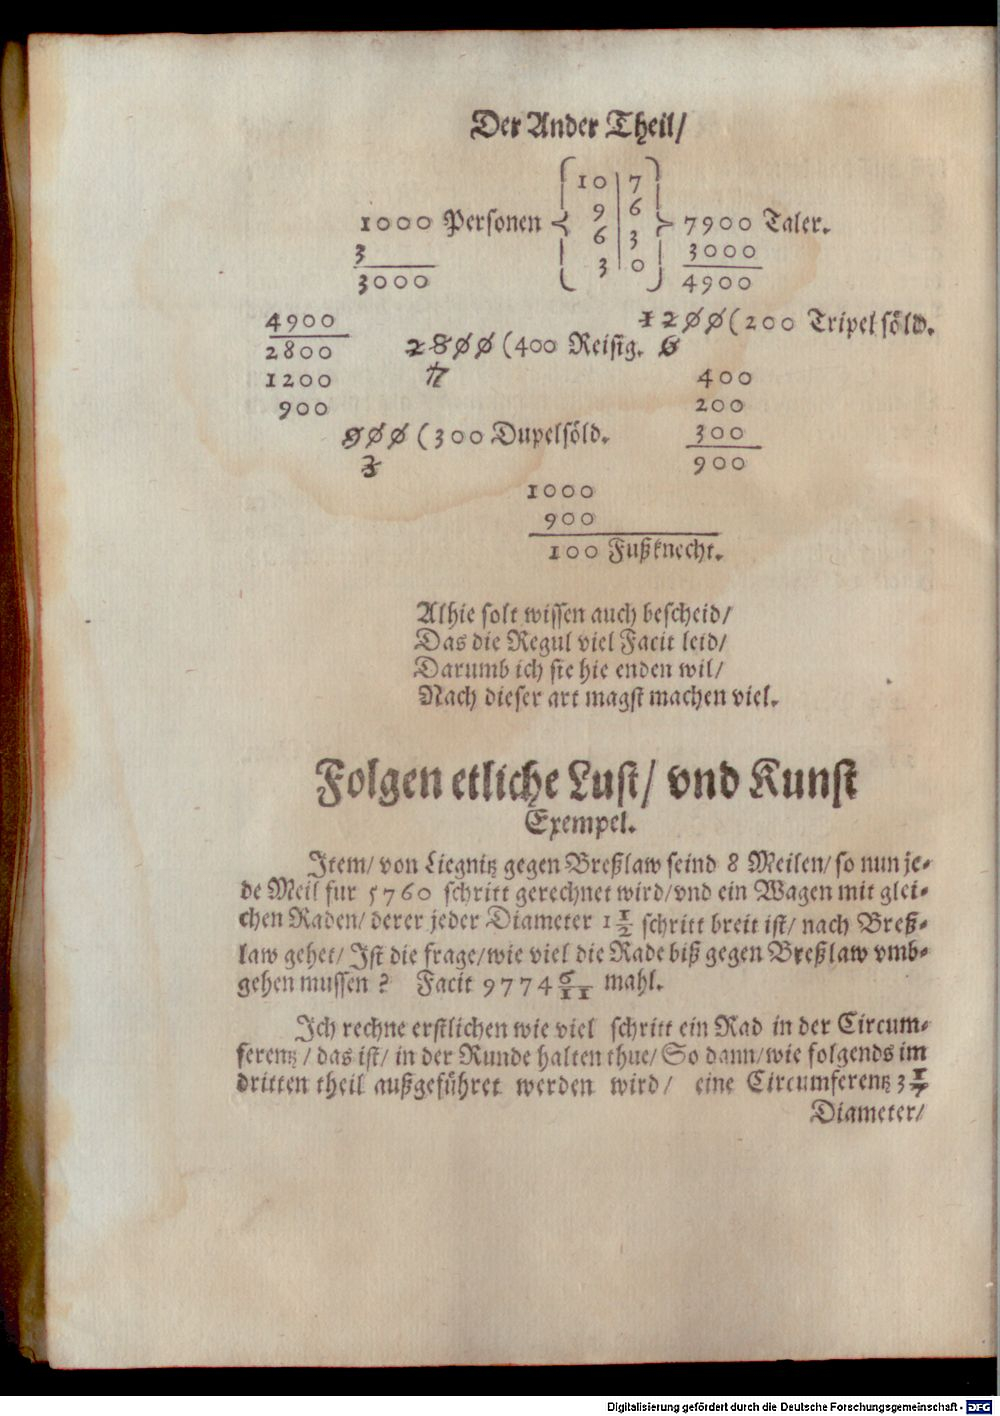 Der Ander Theil/
10 | 7
1000 Personen 9 | 6 7900 Taler.
3 6 | 3 3000
3000 3 | 0 4900
4900 1200(200 Tripelsöld.
2800 2800(400 Reisig. 6
1200 7 400
900 200
900(300 Dupelsöld. 300
3 900
1000
900
100 Fußknecht.
Alhie solt wissen auch bescheid/
Das die Regul viel Facit leid/
Darumb ich sie hie enden wil/
Nach dieser art magst machen viel.
Folgen etliche Lust/ vnd Kunst
Exempel.
Item/ von Liegnitz gegen Breßlaw seind 8 Meilen/ so nun je-
de Meil fur 5760 schritt gerechnet wird/ vnd ein Wagen mit glei-
chen Raden/ derer jeder Diameter 1 1/2 schritt breit ist/ nach Breß-
law gehet/ Ist die frage/ wie viel die Rade biß gegen Breßlaw vmb-
gehen mussen ? Facit 9774 6/11 mahl.
Ich rechne erstlichen wie viel schritt ein Rad in der Circum-
ferentz/ das ist/ in der Runde halten thue/ So dann/ wie folgends im
dritten theil außgeführet werden wird/ eine Circumferentz 3 1/7
Diameter/
Digitalisierung gefördert durch die Deutsche Forschungsgemeinschaft - DFG